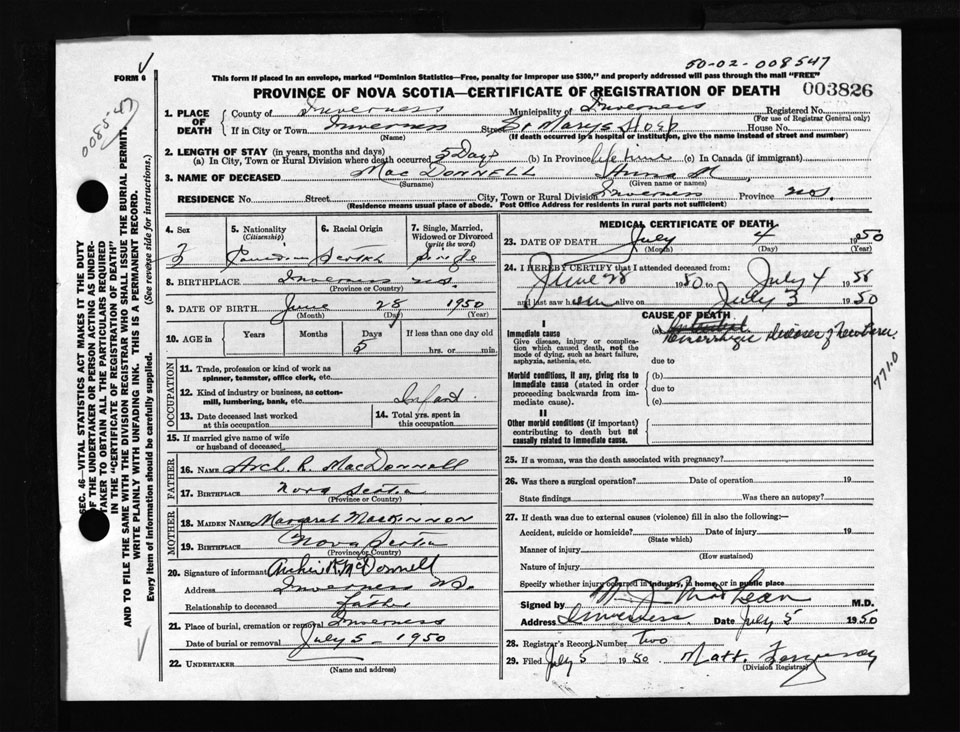 50-02-008547
FORM 6
This form if placed in an envelope, marked "Dominion Statistics—Free, penalty for improper use $300," and properly addressed will pass through the mail "FREE"
PROVINCE OF NOVA SCOTIA—CERTIFICATE OF REGISTRATION OF DEATH 003826
008547
SEC. 46—VITAL STATISTICS ACT MAKES IT THE DUTY
OF THE UNDERTAKER OR PERSON ACTING AS UNDER-
TAKER TO OBTAIN ALL THE PARTICULARS REQUIRED
IN THE "CERTIFICATE OF REGISTRATION OF DEATH"
AND TO FILE THE SAME WITH THE DIVISION REGISTRAR WHO SHALL ISSUE THE BURIAL PERMIT.
WRITE PLAINLY WITH UNFADING INK. THIS IS A PERMANENT RECORD.
Every item of information should be carefully supplied. (See reverse side for instructions.)
1. PLACE OF DEATH County of Inverness Municipality of Inverness Registered No.
(For use of Registrar General only)
If in City or Town Inverness Street St Mary's Hosp House No.
(Name) (If death occurred in a hospital or institution, give the name instead of street and number)
2. LENGTH OF STAY (in years, months and days)
(a) In City, Town or Rural Division where death occurred 5 Days (b) In Province life time (c) In Canada (if immigrant)
3. NAME OF DECEASED MacDONNELL Anna M
(Surname) (Given name or names)
RESIDENCE No. Street City, Town or Rural Division Inverness Province N.S.
(Residence means usual place of abode. Post Office Address for residents in rural parts not sufficient)
4. Sex 5. Nationality (Citizenship) 6. Racial Origin 7. Single, Married, Widowed or Divorced (write the word)
F Canadian Scotch Single
8. BIRTHPLACE Inverness N.S.
(Province or Country)
9. DATE OF BIRTH June 28 1950
(Month) (Day) (Year)
10. AGE in Years Months Days If less than one day old
5 hrs. or min.
OCCUPATION
11. Trade, profession or kind of work as
spinner, teamster, office clerk, etc.
12. Kind of industry or business, as cotton-
mill, lumbering, bank, etc. Infant
13. Date deceased last worked
at this occupation
14. Total yrs. spent in
this occupation
15. If married give name of wife
or husband of deceased
FATHER
16. NAME Arch. R. MacDonnell
17. BIRTHPLACE Nova Scotia
(Province or Country)
MOTHER
18. MAIDEN NAME Margaret MacKinnon
19. BIRTHPLACE Nova Scotia
(Province or Country)
20. Signature of informant Archie R McDonnell
Address Inverness N.S.
Relationship to deceased father
21. Place of burial, cremation or removal Inverness
Date of burial or removal July 5 - 1950
22. UNDERTAKER
(Name and address)
MEDICAL CERTIFICATE OF DEATH
23. DATE OF DEATH July 4 1950
(Month) (Day) (Year)
24. I HEREBY CERTIFY that I attended deceased from:
June 28 1950 to July 4 1950
and last saw h er alive on July 3 1950
CAUSE OF DEATH
I
Immediate cause (a) Hemorrhagic Disease of Newborn
Give disease, injury or complica-
tion which caused death, not the
mode of dying, such as heart failure,
asphyxia, asthenia, etc.
due to
Morbid conditions, if any, giving rise to
immediate cause (stated in order
proceeding backwards from im-
mediate cause).
(b)
due to
(c)
771.0
II
Other morbid conditions (if important)
contributing to death but not
causally related to immediate cause.
25. If a woman, was the death associated with pregnancy?
26. Was there a surgical operation? Date of operation 19
State findings Was there an autopsy?
27. If death was due to external causes (violence) fill in also the following:—
Accident, suicide or homicide? Date of injury 19
(State which)
Manner of injury
(How sustained)
Nature of injury
Specify whether injury occurred in industry, in home, or in public place
Signed by MacLean M.D.
Address Inverness Date July 5 1950
28. Registrar's Record Number two
29. Filed July 5 1950 Matt.
(Division Registrar)